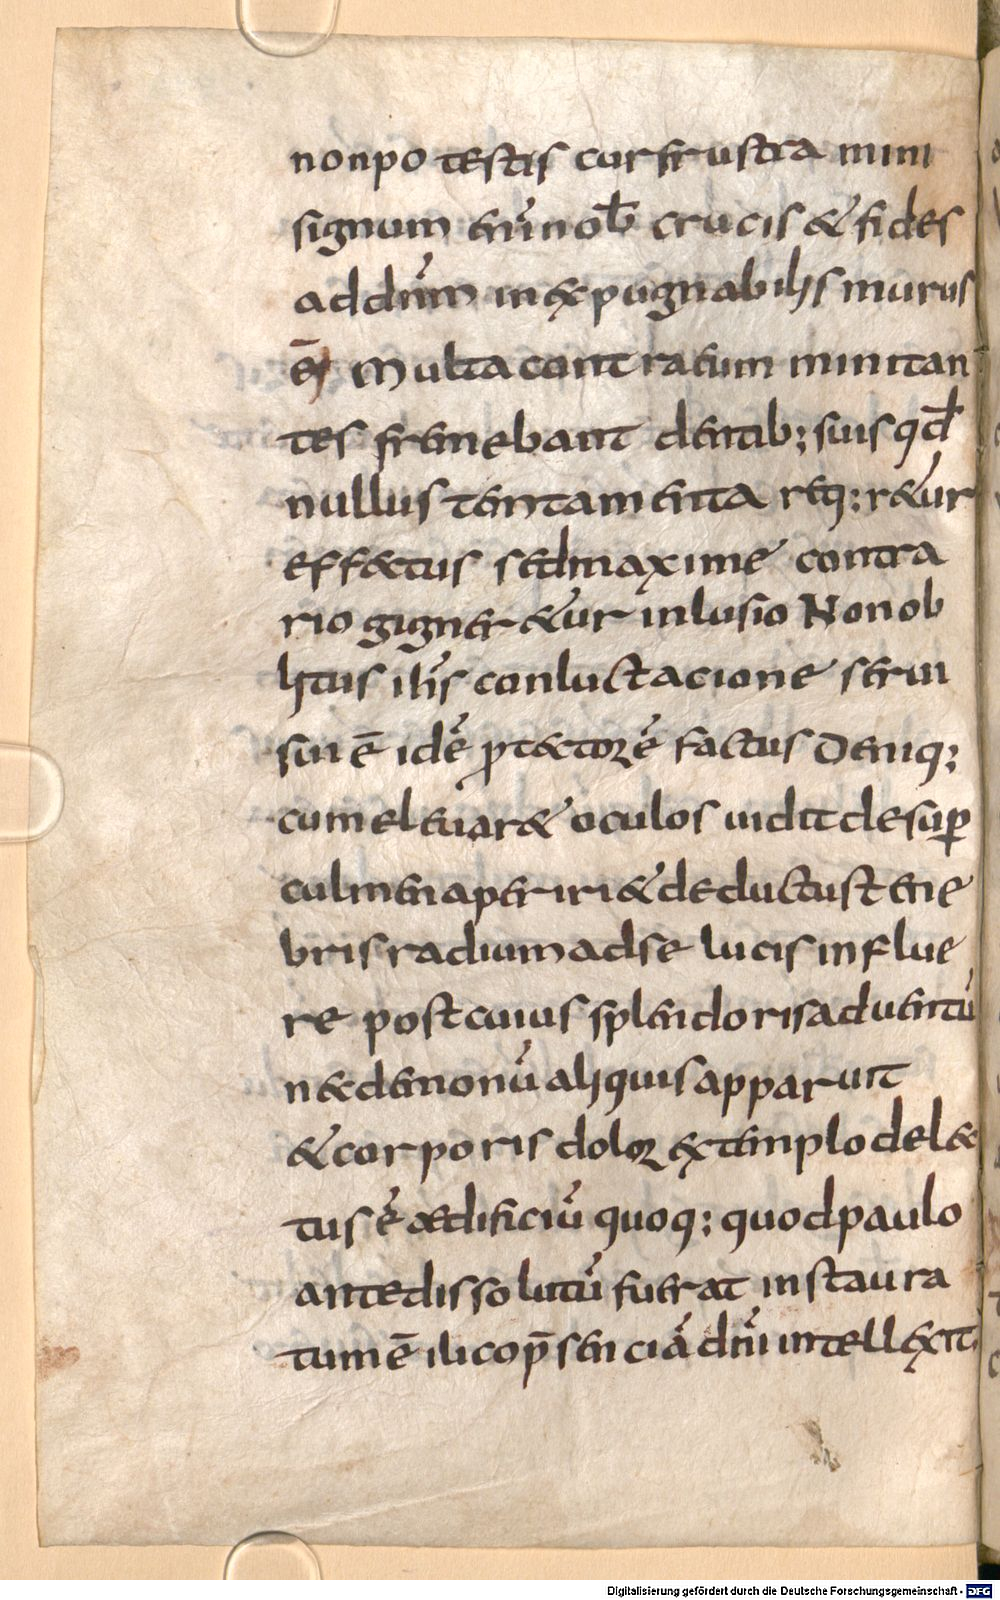 nonpo testis cur frustra mini
signum enī nob̄ crucis & fides
ad dnm̄ inexpugnabilis murus
ē; Multa contra eum minitan
tes fremebant dentib; suis qd̄
nullus temtamenta req; r&ur
effectus sed maxime contra
rio gigner&ur inlusio Non ob
litus ih̄s conluctacione serui
sui ē idē ꝓtectorē factus Deniq;
cum eleuar& oculos uidit desuꝑ
culmen aperiri & deductus tene
bris radium ad se lucis influe
re post cuius splendoris aduentū
nec demonū aliquis apparuit
& corporis dolor extemplo dele
tus ē ædificiū quoq; quod paulo
ante dissolutū fuerat instaura
tum ē ilico p̄senciā dnī intellexit
Digitalisierung gefördert durch die Deutsche Forschungsgemeinschaft - DFG